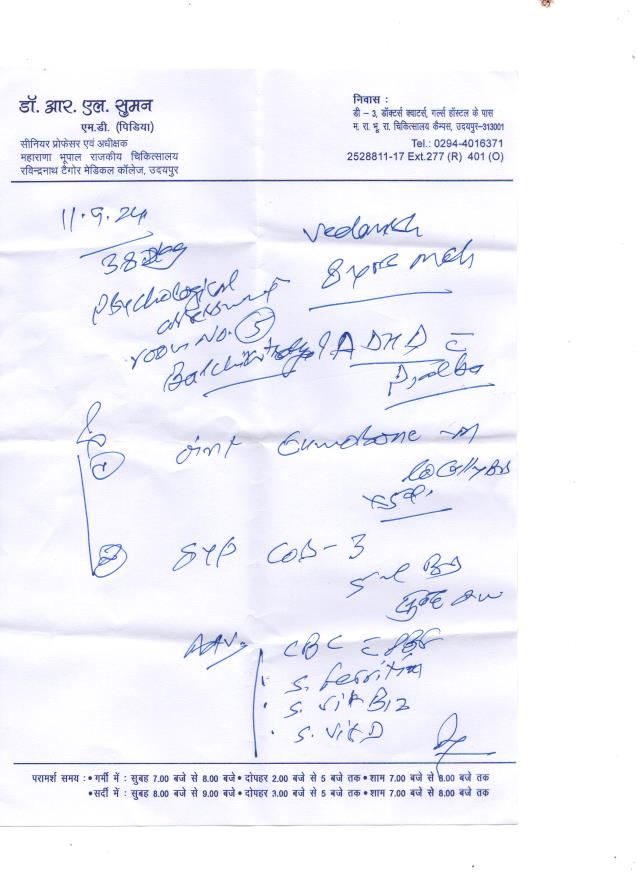 डॉ. आर. एल. सुमन
एम.डी. (पिडिया)
सीनियर प्रोफेसर एवं अधीक्षक
महाराणा भूपाल राजकीय चिकित्सालय
रविन्द्रनाथ टैगोर मेडिकल कॉलेज, उदयपुर
निवास :
डी – 3, डॉक्टर्स क्वाटर्स, गर्ल्स हॉस्टल के पास
म. रा. भू. रा. चिकित्सालय कैम्पस, उदयपुर–313001
Tel.: 0294-4016371
2528811-17 Ext.277 (R) 401 (O)
11.9.24
38
Vedansh
8 year
Psychological
room No. 5
ADHD c̄
oint -M
locally BD
Syp COB-3
5 ml BD
Adv.
CBC c̄ PBF
S. ferritin
S. vit B12
S. vit D
परामर्श समय : • गर्मी में : सुबह 7.00 बजे से 8.00 बजे • दोपहर 2.00 बजे से 5 बजे तक • शाम 7.00 बजे से 8.00 बजे तक
• सर्दी में : सुबह 8.00 बजे से 9.00 बजे • दोपहर 3.00 बजे से 5 बजे तक • शाम 7.00 बजे से 8.00 बजे तक